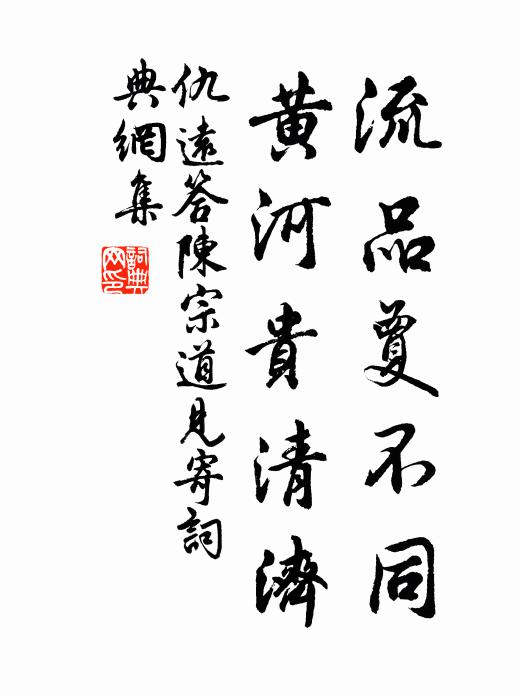 流品敻不同
黃河貴清濟
仇遠答陳宗道見寄詞
典網集
詞典
网印